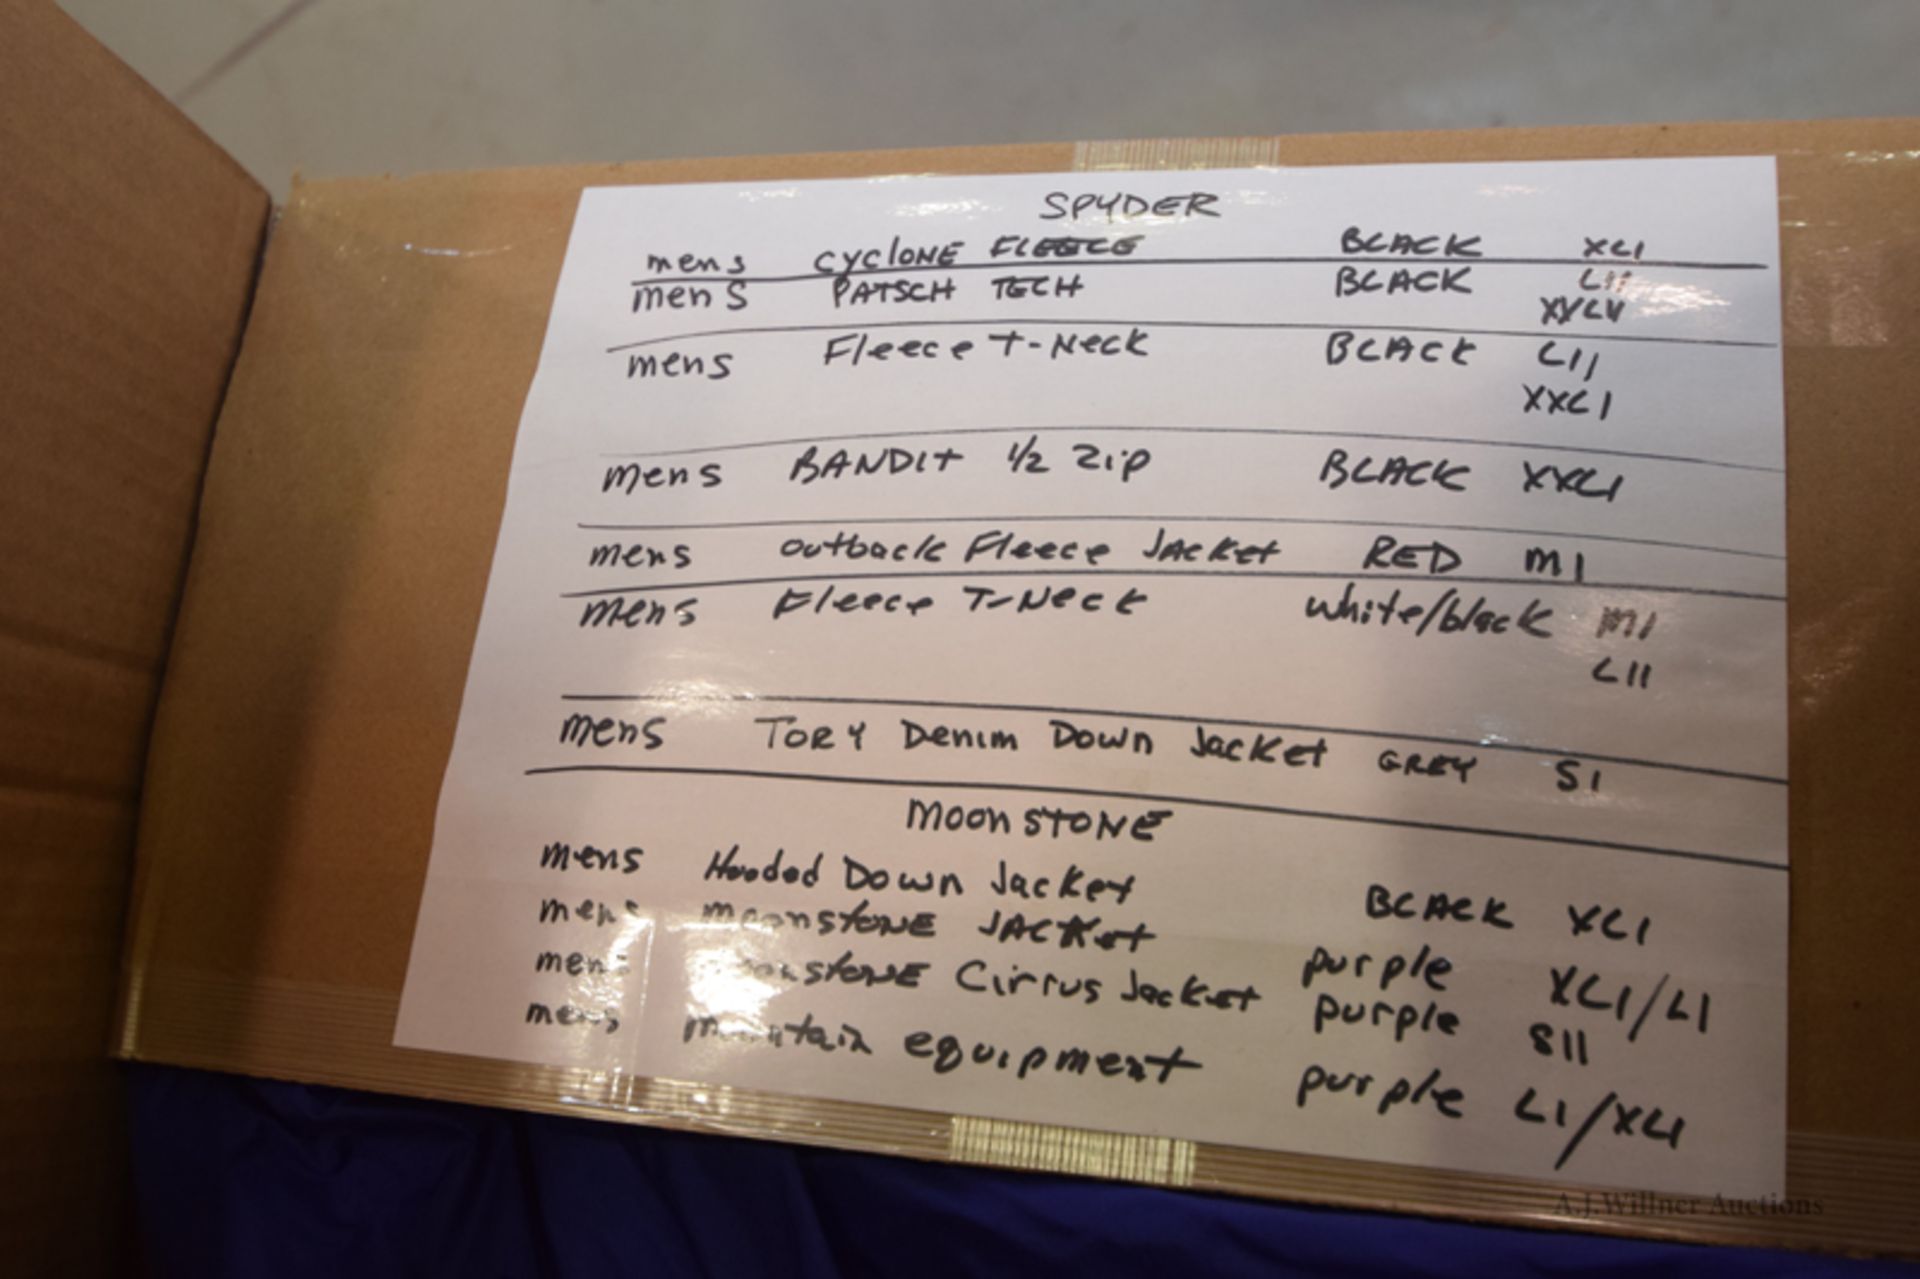 SPYDER
mens CYCLONE FLEECE BLACK XL1
mens PATSCH TECH BLACK LII
XXLII
mens Fleece T-Neck BLACK LII
XXL1
mens BANDIT 1/2 Zip BLACK XXL1
mens Outback Fleece Jacket RED M1
mens Fleece T-Neck white/black M1
LII
mens TORY Denim Down Jacket GREY S1
MOONSTONE
mens Hooded Down Jacket BLACK XL1
mens MOONSTONE JACKET purple XL1/L1
mens MOONSTONE Cirrus Jacket purple SII
mens mountain equipment purple L1/XL1
A.J.Willner Auctions